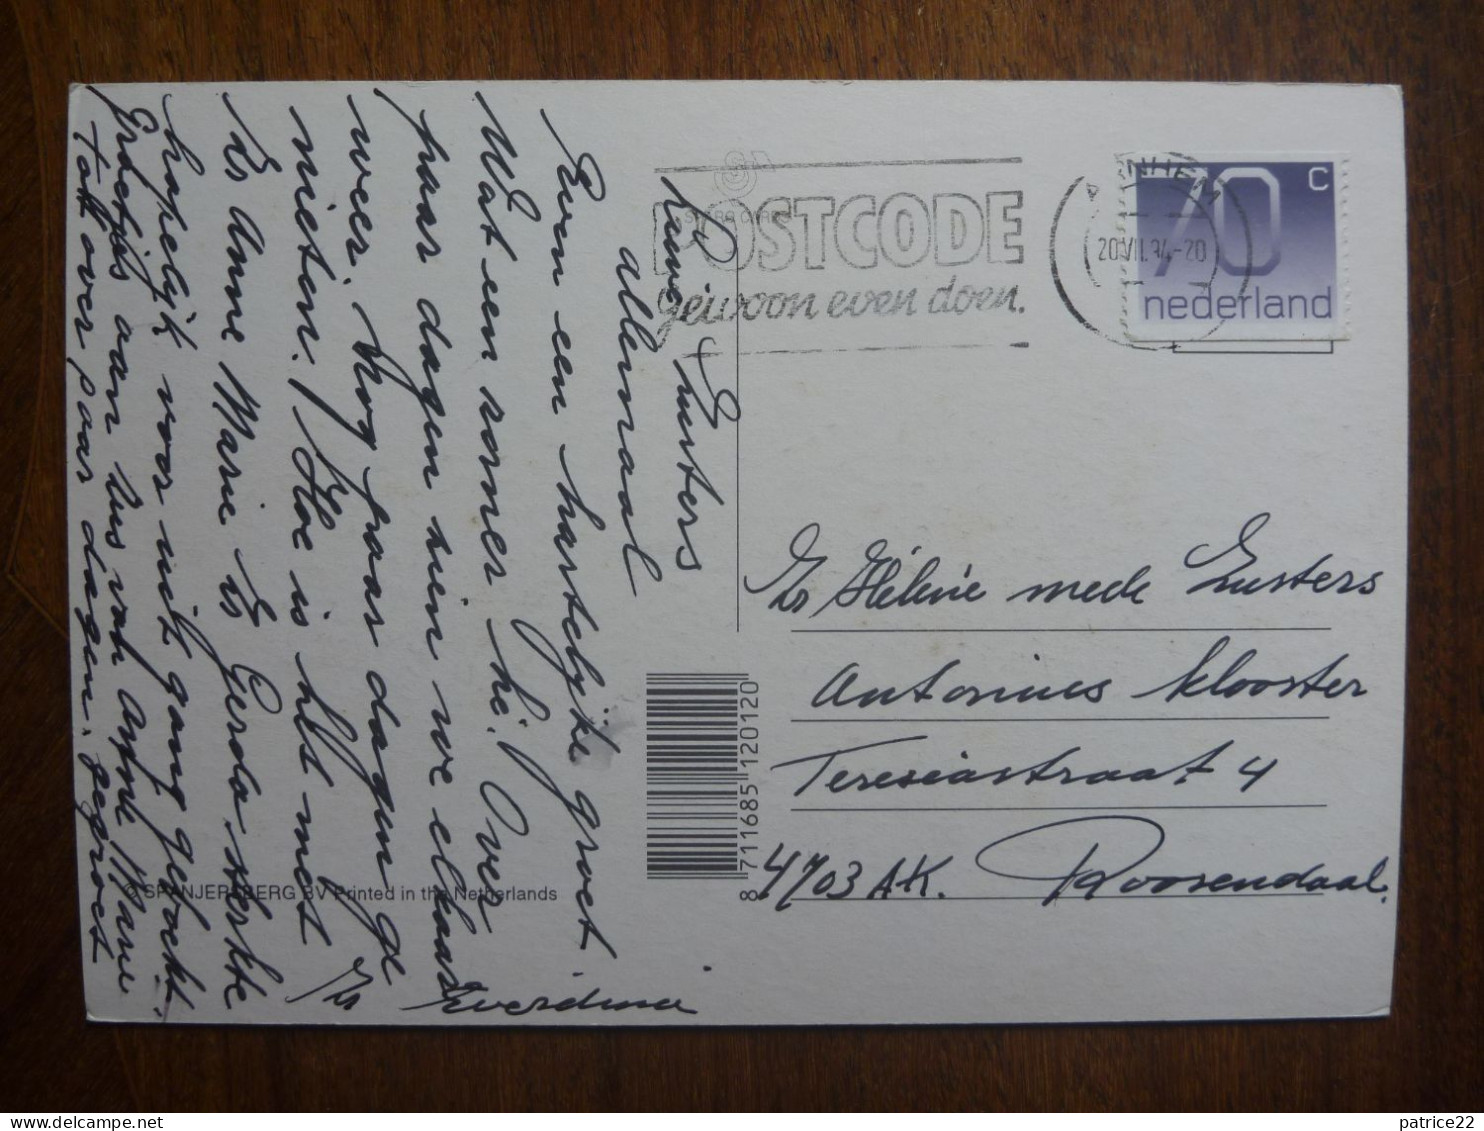 Lieve Zusters
allemaal
Even een hartelijke groet
Wat een zomer hè! Over
paar dagen zien we elkaar
weer. Nog paar dagen ge
nieten. Hoe is het met
Zr Anne Marie Zr Gerda sterkte
hopelijk voor uit gang geboekt.
Groetjes aan zus van Anne Marie
Tot over paar dagen. gegroet
Zr Everdina
POSTCODE
gewoon even doen.
ARNHEM
20.VII.94-20
70 C
nederland
Zr Hélène mede Zusters
Antonius klooster
Teresiastraat 4
4703 AK. Roosendaal.
8 711685 120120
© SPANJERSBERG BV Printed in the Netherlands
patrice22